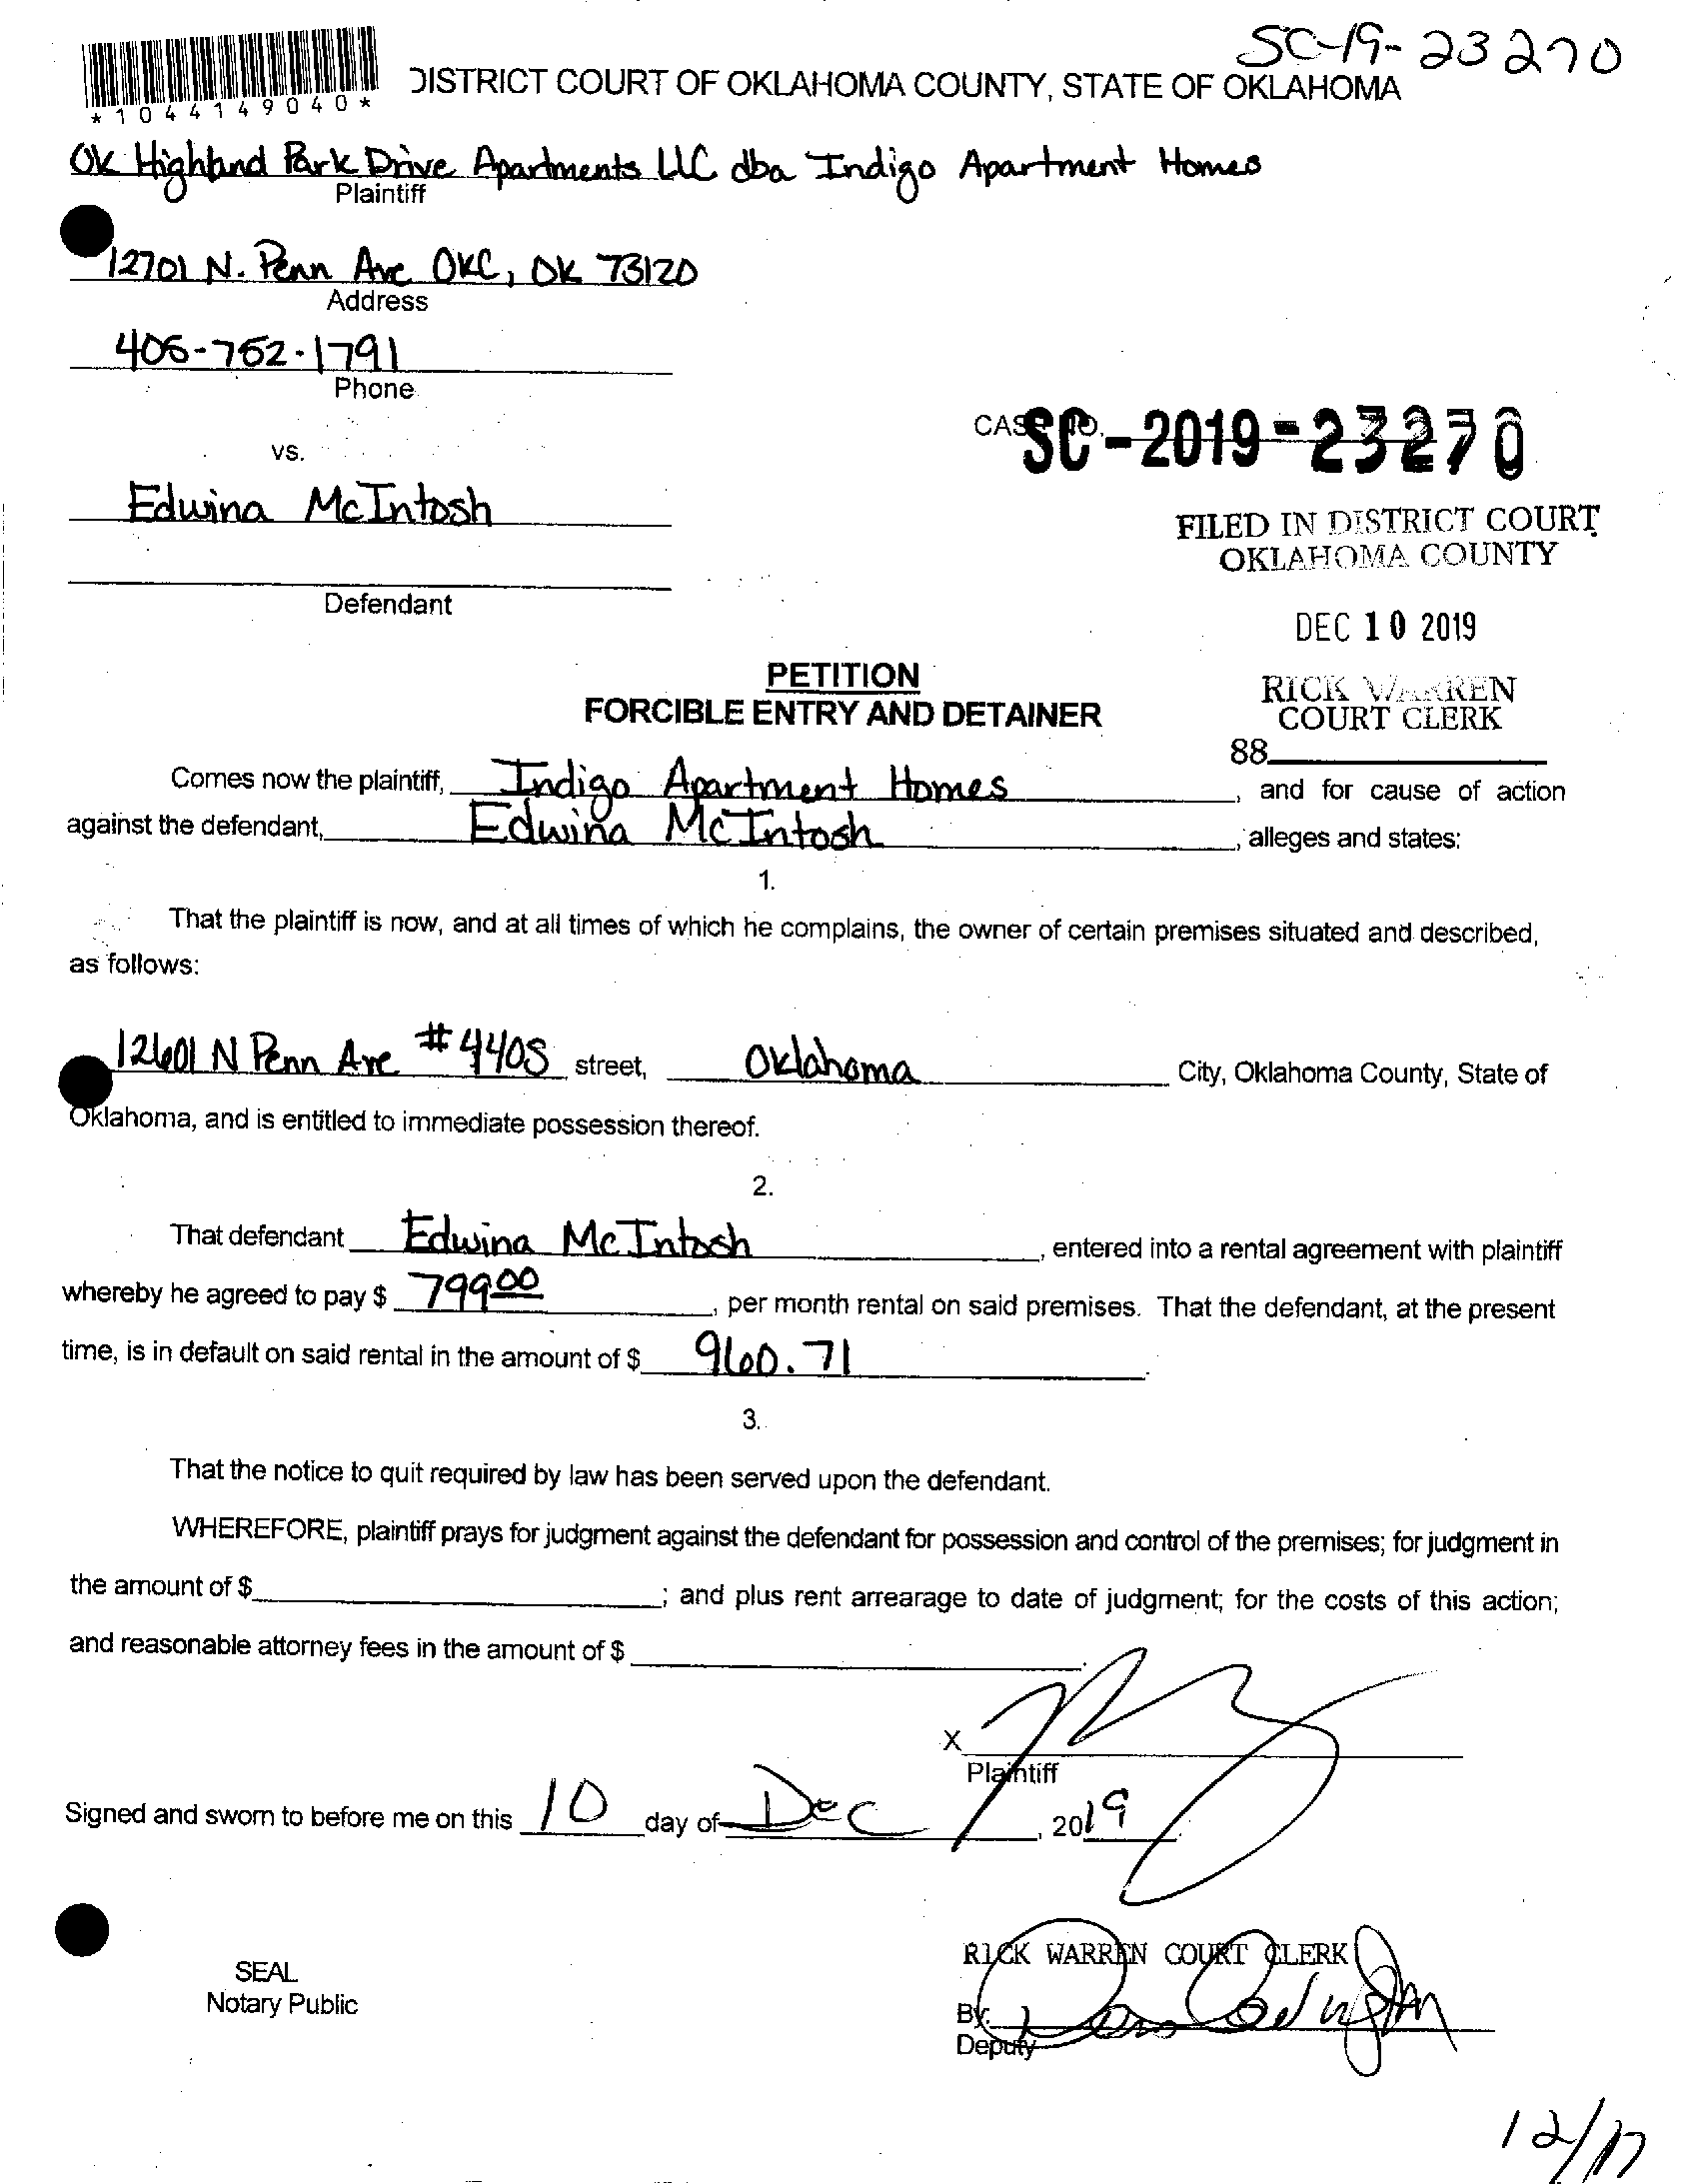 SC-19-23270
*1044149040*
DISTRICT COURT OF OKLAHOMA COUNTY, STATE OF OKLAHOMA
OK Highland Park Drive Apartments LLC dba Indigo Apartment Homes
Plaintiff
12701 N. Penn Ave OKC, OK 73120
Address
405-752-1791
Phone
CASE NO. SC-2019-23270
vs.
Edwina McIntosh
FILED IN DISTRICT COURT
OKLAHOMA COUNTY
Defendant
DEC 10 2019
PETITION
FORCIBLE ENTRY AND DETAINER
RICK WARREN
COURT CLERK
88
Comes now the plaintiff, Indigo Apartment Homes, and for cause of action
against the defendant, Edwina McIntosh, alleges and states:
1.
That the plaintiff is now, and at all times of which he complains, the owner of certain premises situated and described,
as follows:
12601 N Penn Ave #440S street, Oklahoma City, Oklahoma County, State of
Oklahoma, and is entitled to immediate possession thereof.
2.
That defendant Edwina McIntosh, entered into a rental agreement with plaintiff
whereby he agreed to pay $ 799.00, per month rental on said premises. That the defendant, at the present
time, is in default on said rental in the amount of $ 960.71.
3.
That the notice to quit required by law has been served upon the defendant.
WHEREFORE, plaintiff prays for judgment against the defendant for possession and control of the premises; for judgment in
the amount of $; and plus rent arrearage to date of judgment; for the costs of this action;
and reasonable attorney fees in the amount of $.
X
Plaintiff
Signed and sworn to before me on this 10 day of Dec, 2019.
RICK WARREN COURT CLERK
SEAL
Notary Public
By:
Deputy
12/17